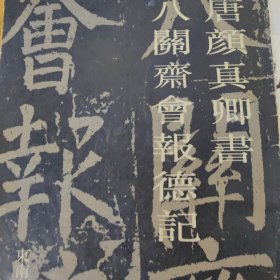 唐顏真卿書
八關齋會報德記
會報
東南